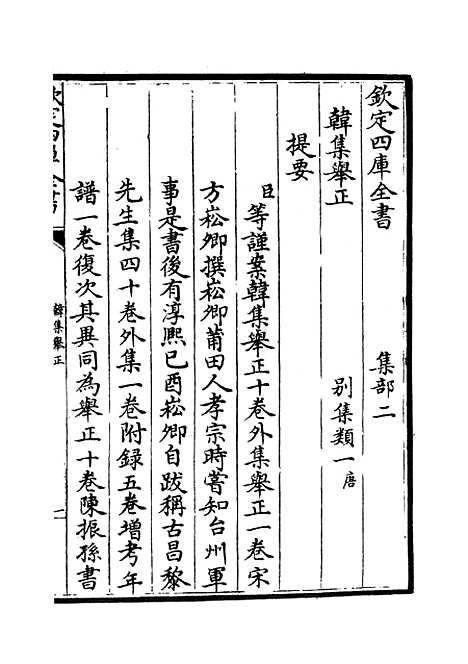 欽定四庫全書　集部二
韓集舉正　別集類一唐
提要
臣等謹案韓集舉正十卷外集舉正一卷宋
方崧卿撰崧卿莆田人孝宗時嘗知台州軍
事是書後有淳熙己酉崧卿自跋稱右昌黎
先生集四十卷外集一卷附録五卷增考年
譜一卷復次其異同為舉正十卷陳振孫書
欽定四庫全書
韓集舉正
一